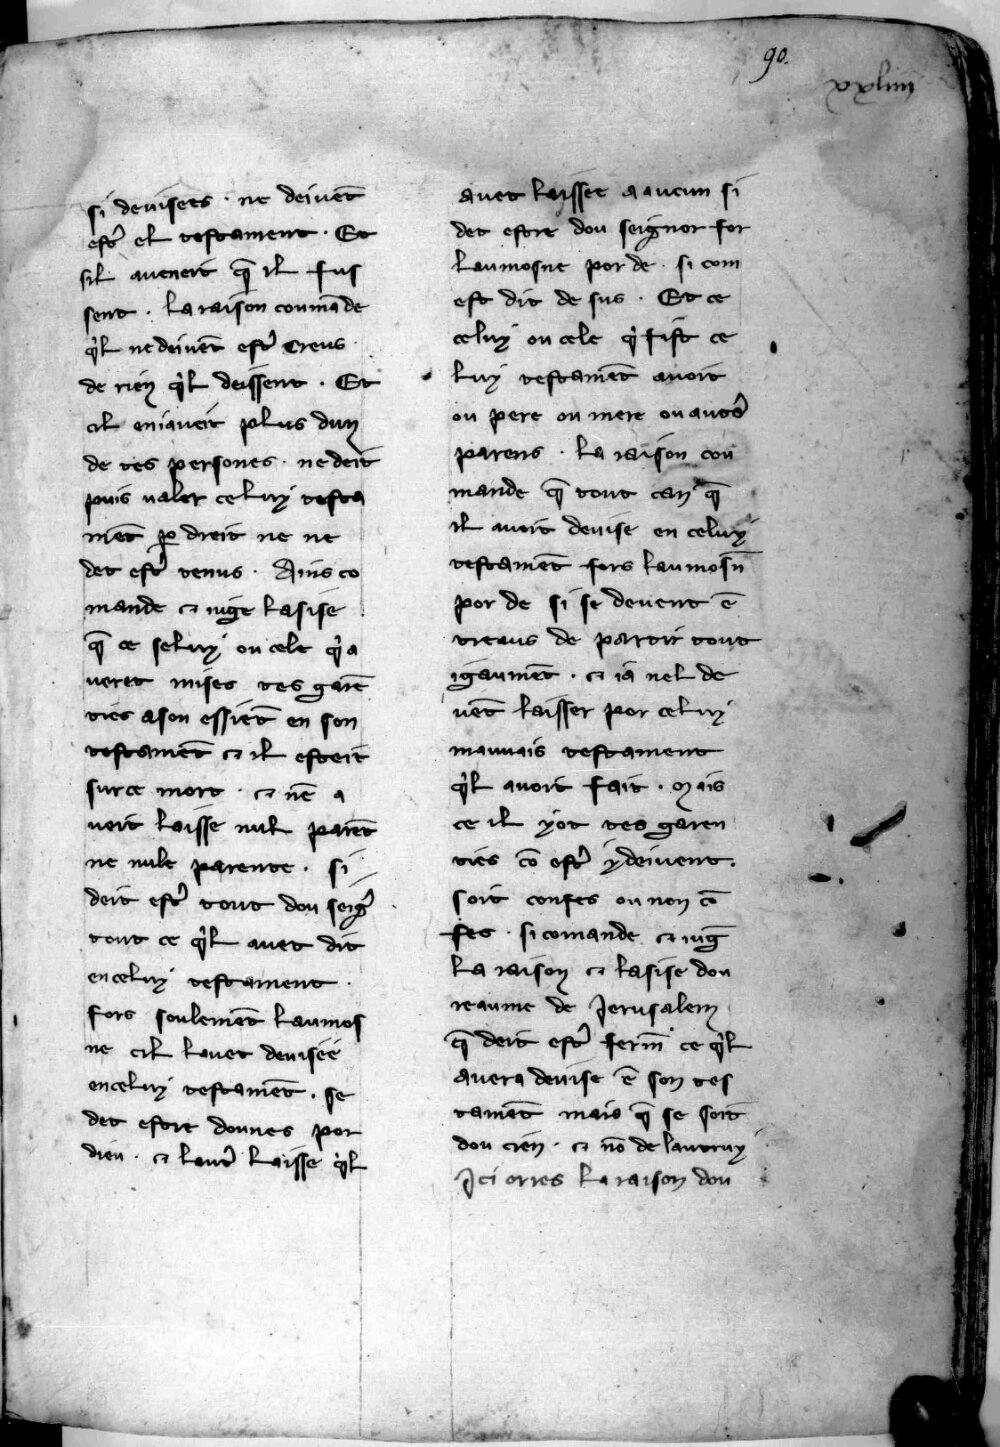 90.
xxliiij
si deuisees · ne deiuẽt
estr̉ el testament · Et
sil auenoit q̃ il fus
sent · la raison coumãde
q̉l ne deiuẽt estr̉ creus ·
de rien q̉l deissent · Et
cil eniaueit plus dun
de tes persones · ne deit
puis ualer celuy testa
mẽt ꝑ dreit ne ne
det estr̉ tenus · Ains co
mande ⁊ iuge lasise
q̃ ce seluy ou cele q̉ a
ueret mises tes garẽ
ties ason essiẽt en son
testamẽt ⁊ il esteit
surce mort · ⁊ nẽ a
uoit laisse nul parẽt
ne nule parente · si
deit estr̉ tout dou seigr̉
tout ce q̉l auet dit
enceluy testament ·
fors soulemẽt laumos
ne cil lauet deuisée
enceluy testamẽt · se
det estre dounes por
dieu · ⁊ lautr̉ laisse q̉l
auet laissee a aucun si
det estre dou seignor for
laumosne por de · si com
est dit de sus · Et ce
celuy ou cele q̉ fist ce
luy testamẽt auoit
ou pere ou mere ou autr̉
parens · la raison cou
mande q̃ tout can q̃
il auoit deuise en celuy
testamẽt fors laumosñ
por de si se deuent ẽ
treaus de partir tout
igaumẽt · ⁊ ia nel de
uẽt laisser por celuy
mauuais testament
q̉l auoit fait · Mais
ce il yot tes garen
ties cõ estr̉ ydeiuent ·
soit confes ou non cõ
fes · si comande ⁊ iug̃
la raison ⁊ lasise dou
reaume de Jerusalem
q̃ deit estr̉ ferm̃ ce q̉l
auera deuise ẽ son tes
tamẽt mais q̃ se soit
dou cien · ⁊ nõ de lautruy
Jci orres la raison dou